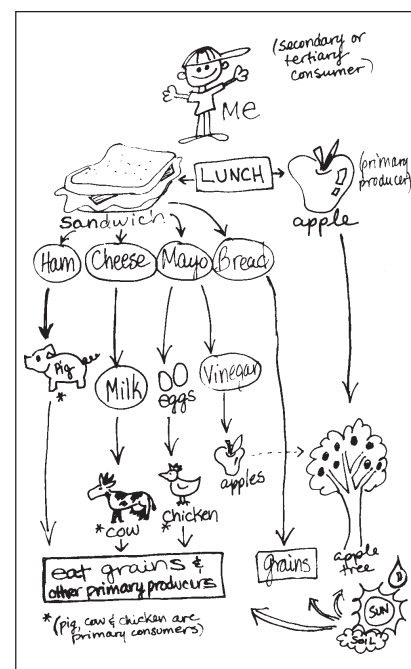 (secondary or
tertiary
consumer)
Me
LUNCH
(primary
producer)
apple
Sandwich
Ham
Cheese
Mayo
Bread
Pig
*
Milk
eggs
Vinegar
apples
*cow
*
chicken
eat grains &
other primary producers
grains
apple
tree
SUN
SOIL
* (pig, cow & chicken are
primary consumers)